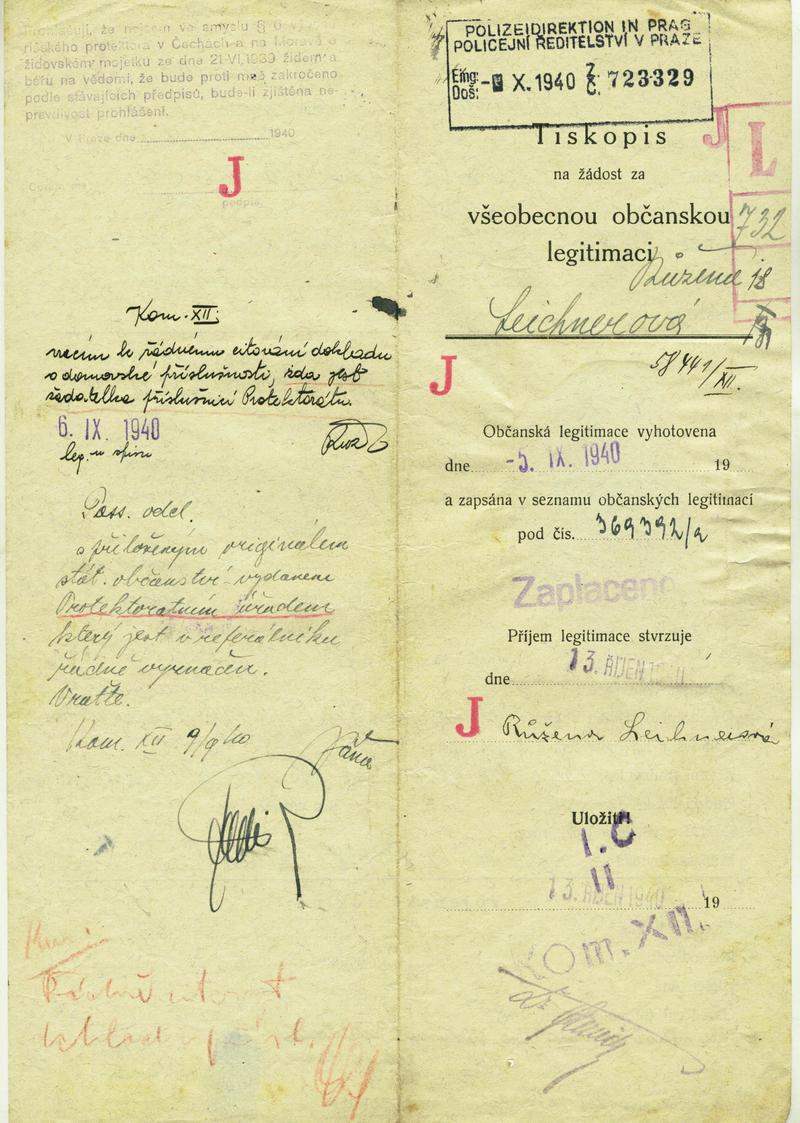 Prohlašuji, že nejsem ve smyslu §
říšského protektora v Čechách a na Moravě o
židovském majetku ze dne 21.VI.1939 židem a
béřu na vědomí, že bude proti mně zakročeno
podle stávajících předpisů, bude-li zjištěna ne-
pravdivost prohlášení.
V Praze dne 1940
J
podpis
Kom. XII.
vracím k řádnému citování dokladu
o domovské příslušnosti, zda jest
žadatelka příslušnicí Protektorátu.
6. IX. 1940
leg. u spisu
Pass. odděl.
s přiloženým originálem
stát. občanství vydaném
Protektorátním úřadem
který jest v referátníku
řádně vyznačen.
Vraťte.
Kom. XII 9/9 40
Řádně citovat
POLIZEIDIREKTION IN PRAG
POLICEJNÍ ŘEDITELSTVÍ V PRAZE
Eing:
Doš: X. 1940 Z. Č. 723329
Tiskopis
J
L
na žádost za
všeobecnou občanskou
732
legitimaci
Růžena 18
Leichnerová
J
58441/XII.
Občanská legitimace vyhotovena
dne -5. IX. 1940 19
a zapsána v seznamu občanských legitimací
pod čís. 369392/a
Zaplaceno
Příjem legitimace stvrzuje
dne 13. ŘÍJEN 1940
J
Růžena Leichnerová
Uložiti!
I.C
II
13. ŘÍJEN 1940 19
KOM. XII.